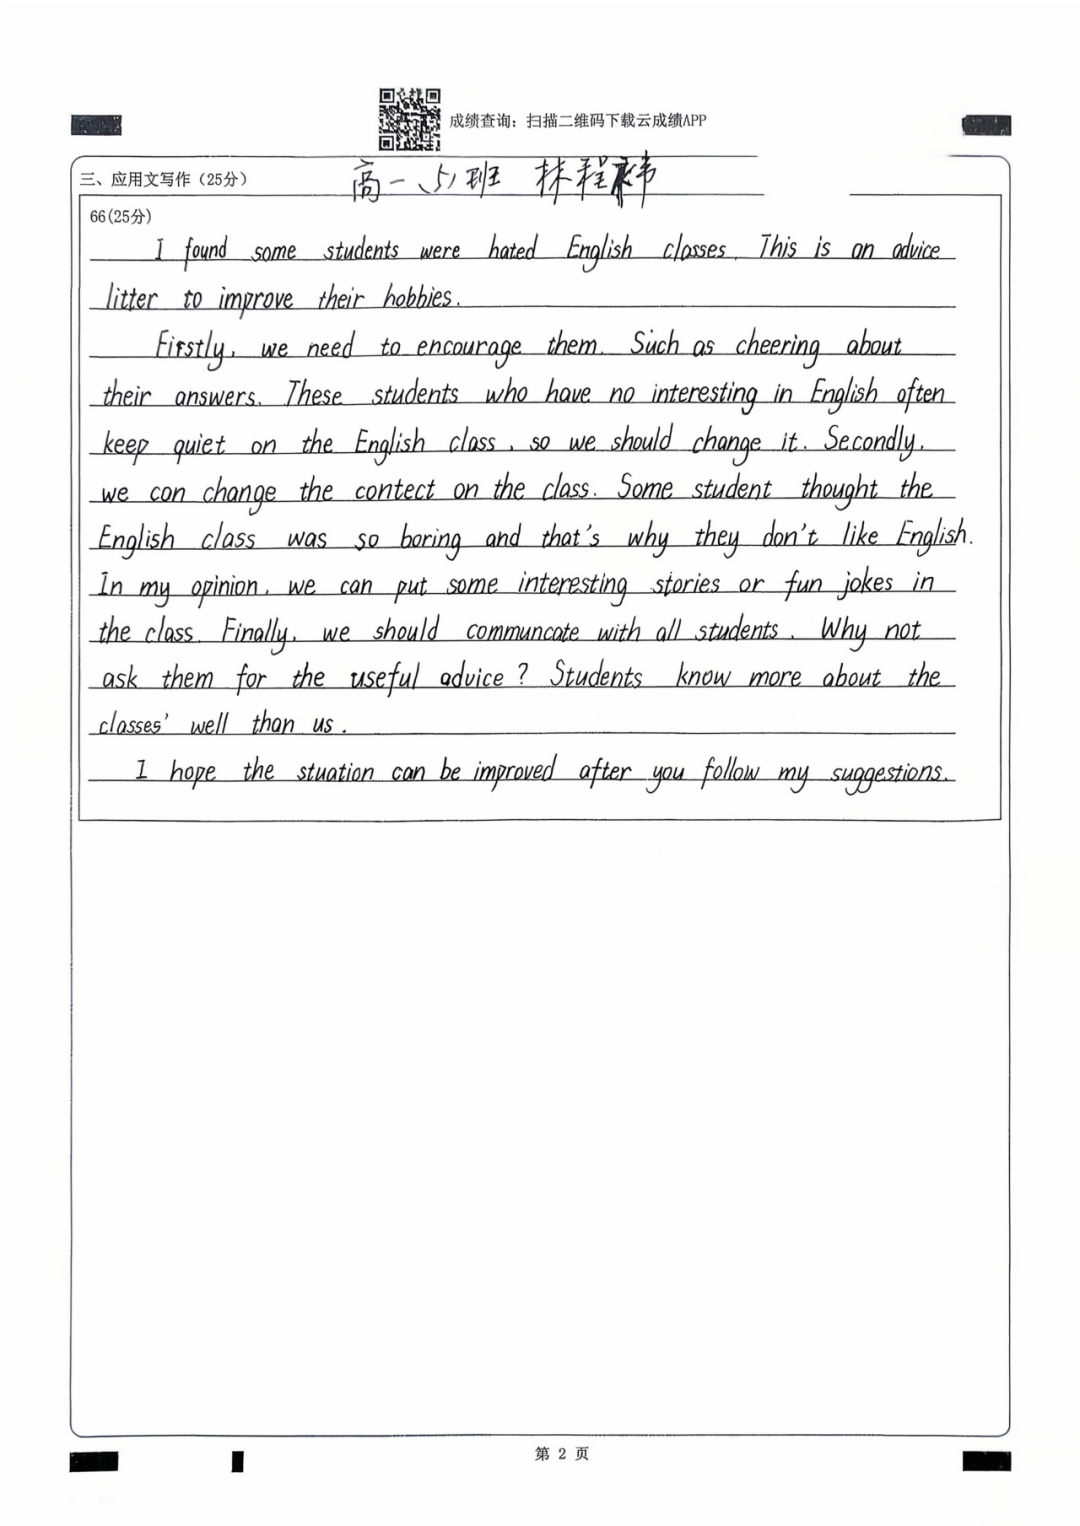 成绩查询：扫描二维码下载云成绩APP
三、应用文写作（25分）
高一（5）班 林程
66(25分)
I found some students were hated English classes. This is an advice
litter to improve their hobbies.
Firstly, we need to encourage them. Such as cheering about
their answers. These students who have no interesting in English often
keep quiet on the English class, so we should change it. Secondly,
we can change the contect on the class. Some student thought the
English class was so boring and that's why they don't like English.
In my opinion, we can put some interesting stories or fun jokes in
the class. Finally, we should communcate with all students. Why not
ask them for the useful advice? Students know more about the
classes' well than us.
I hope the stuation can be improved after you follow my suggestions.
第 2 页